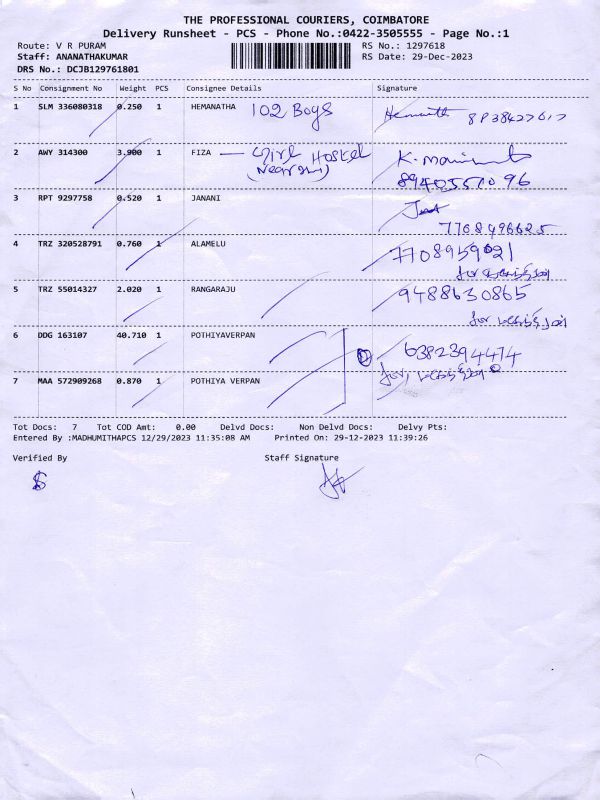 THE PROFESSIONAL COURIERS, COIMBATORE
Delivery Runsheet - PCS - Phone No.:0422-3505555 - Page No.:1
Route: V R PURAM
RS No.: 1297618
Staff: ANANATHAKUMAR
RS Date: 29-Dec-2023
DRS No.: DCJB129761801
S No Consignment No Weight PCS Consignee Details Signature
1 SLM 336080318 0.250 1 HEMANATHA 102 Boys
2 AWY 314300 3.900 1 FIZA — Girl Hostel
3 RPT 9297758 0.520 1 JANANI
7708496625
4 TRZ 320528791 0.760 1 ALAMELU 7708959021
5 TRZ 55014327 2.020 1 RANGARAJU 9488630865
6 DDG 163107 40.710 1 POTHIYAVERPAN 6382394474
7 MAA 572909268 0.870 1 POTHIYA VERPAN
Tot Docs: 7 Tot COD Amt: 0.00 Delvd Docs: Non Delvd Docs: Delvy Pts:
Entered By :MADHUMITHAPCS 12/29/2023 11:35:08 AM Printed On: 29-12-2023 11:39:26
Verified By Staff Signature